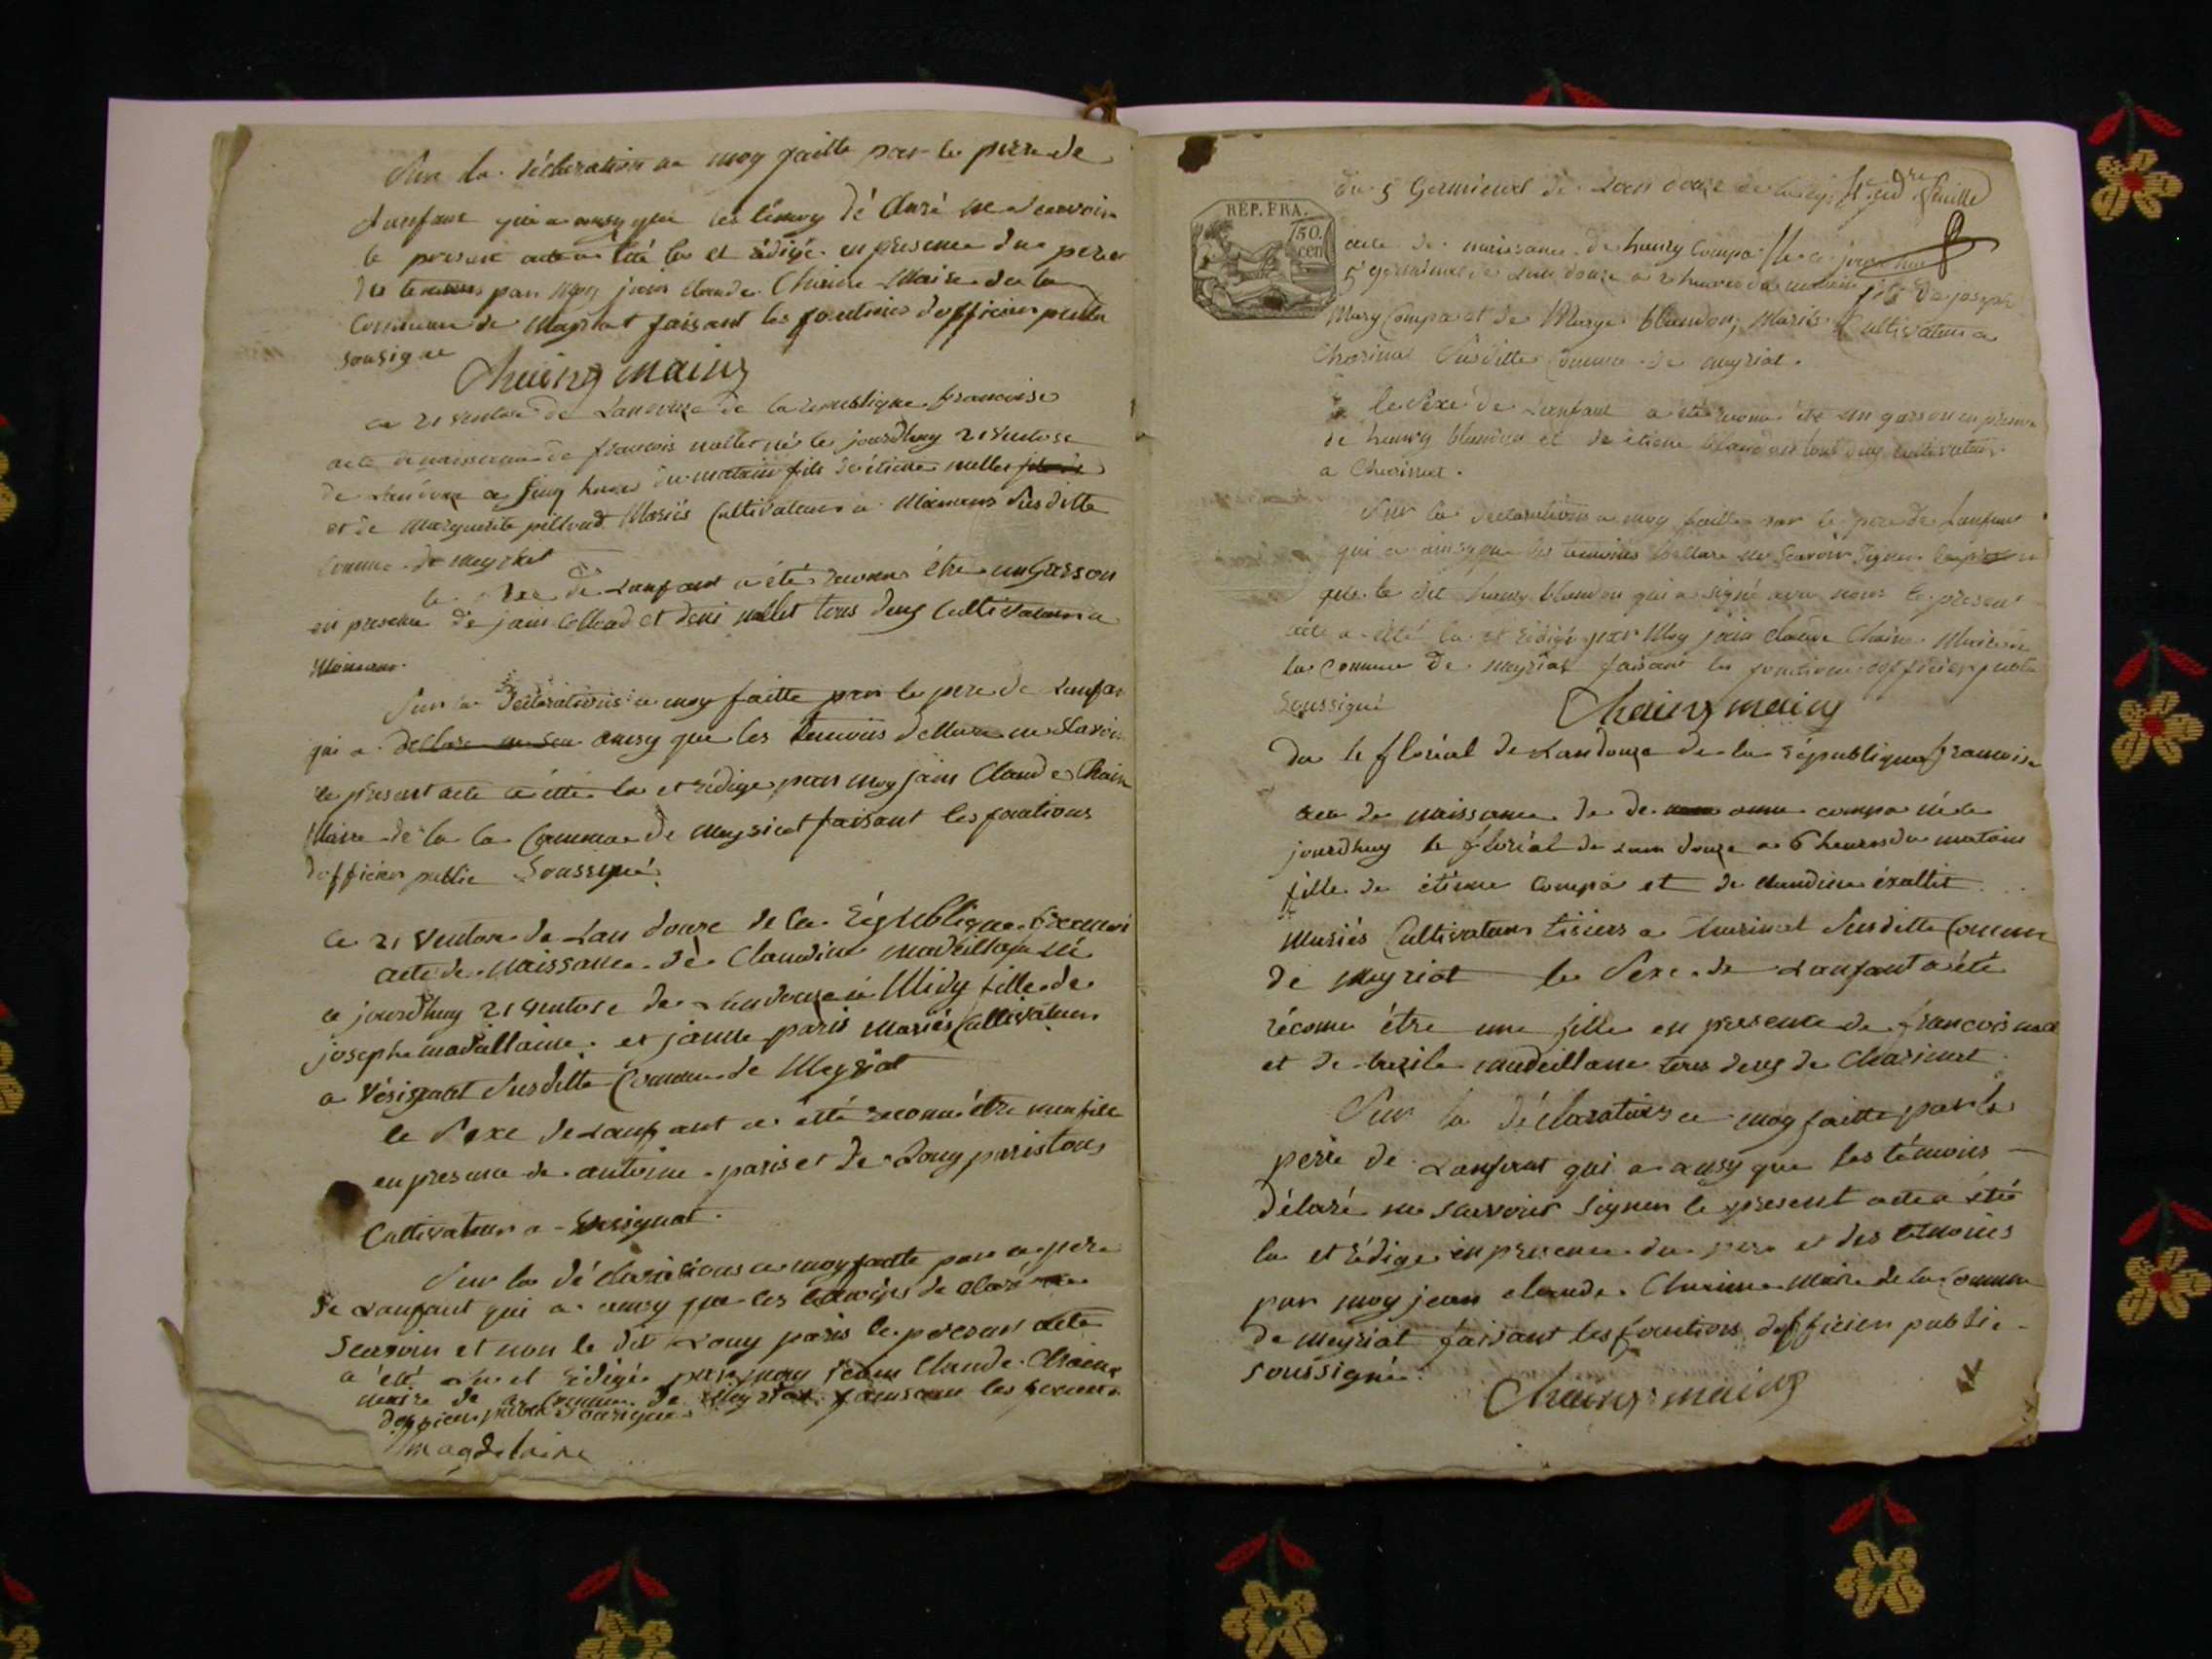 Sur la déclaration a moy faitte par le pere de
Lanfant qui a ausy que les témoy dé Claré ne scavoir
le present acte a été lu et rédigé en presence du pere
des temoins par Moy jean claude Chaine Maire de la
Commune de Mayriat faisant les fonctions dofficier public
Sousigne
Chaing maing
ce 21 ventose de Landouze de la republique francoise
acte de naissance de francois nallet né le jourdhuy 21 ventose
de Landouze a heures du matain fils de étiene nallet
et de Marguerite pilloud Mariés Cultivateurs a Susditte
Comune de meyriat
le Sexe de Lanfant a été reconu être un garson
en presence de jean et deni nallet tous deuy Cultivateurs a
Sur la déclarations a moy faitte par le pere de Lanfan
qui a declare ausy que les temoins dellare ne Scavoir
le present acte a étté lu et rédige par moy jain Claude Chain
Maire de la la Commune de mayriat faisant les fonctions
dofficier public Soussigné
Ce 21 Ventose de Lan douze de la République francoi
acte de Naissance de Claudine madeillaine né
ce jourdhuy 21 ventose de Landouze a Midy fille de
josephe madellaine et janne paris mariés Cultivateurs
a Vésignat Susditte Commune de Meyriat
le Sexe de Lanfant a étté reconu être une fille
en presance de antoine paris et de Louy paris tous
Cultivateurs a Vesignat
Sur la déclarations a moy faitte par le pere
de Lanfant qui a ausy que les témoins de claré ne
Scavoir et non le dit Louy paris le present acte
a été lu et rédigé par moy jean Claude Chaine
maire de la Commune de Meyriat faisant les fonctions
dofficier public Sousigné
magdelaine
du 5 Germinal de Lan douze de la
REP. FRA.
50.
cen
acte de naissance de henry Compa né ce jourdhuy
5 germinal de Lan douze a 2 heures du matain fils de joseph
Mary Compa et de Marye blandon, Mariés Cultivateurs a
Charinat Susditte Comune de meyriat.
le Sexe de Lanfant a été reconu être un garson en presence
de henry blandon et de étiene blandon tous deuy cultivateurs
a Charinat.
Sur la déclarations a moy faitte par le pere de Lanfant
qui a ainsy que les temoins dellare ne Scavoir Signer
que le dit henry blandon qui a signé avec nous le present
acte a été lu et rédigé par Moy jain claude Chaine Maire de
la Comune de meyriat faisant les fonctions dofficier public
Soussigné
Chaing maing
Du le floréal de Landouze de la république francoise
acte de naissance de de anne compa né le
jourdhuy le floréal de Lan douze a 6 heures du matain
fille de étiene Compa et de claudine
Mariés Cultivateurs a Charinat Susditte Comune
de Meyriat le Sexe de Lanfant a été
récomu être une fille en presence de francois
et de madeillane tous deuy de Charinat
Sur la déclaratoins a moy faitte par le
père de Lanfant qui a ausy que les témoins
délaré ne scavoir Signer le present acte a été
lu et rédige en presence du pere et des témoins
par moy jean claude Chaine Maire de la Comune
de meyriat faisant les fonctions dofficier public
soussigné.
Chaing maing